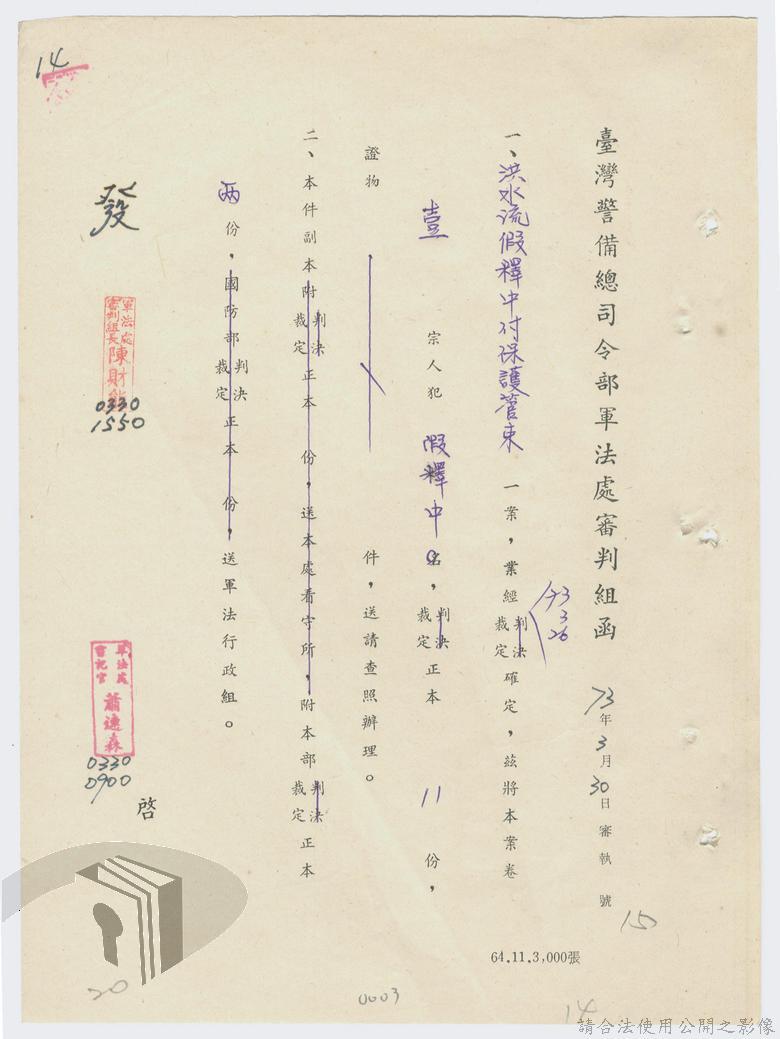 14
臺灣警備總司令部軍法處審判組函
73年3月30日審執 號
一、洪水流假釋中付保護管束 一案,業經判決裁定確定,茲將本案卷
73 3 26
壹 宗人犯 假釋中 名,判決裁定正本 11 份,
證物 件,送請查照辦理。
二、本件副本附判決裁定正本 份,送本處看守所,附本部判決裁定正本
兩份,國防部判決裁定正本 份,送軍法行政組。
發
軍法處審判組長陳財
0330
1550
軍法處書記官
0330
0900
啓
15
64.11.3,000張
20
0003
14
請合法使用公開之影像